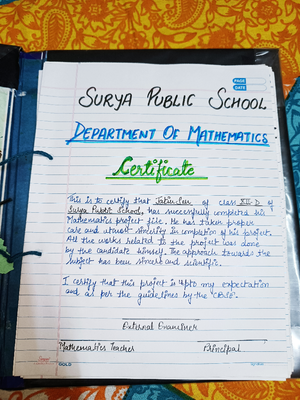 PAGE
DATE
SURYA PUBLIC SCHOOL
DEPARTMENT OF MATHEMATICS
Certificate
This is to certify that Jatin Sen of class XII-D of
Surya Public School, has successfully completed his
Mathematics project file. He has taken proper
care and utmost sincerity in completion of his project.
All the works related to the project was done
by the candidate himself. The approach towards the
subject has been sincere and scientific.
I certify that this project is upto my expectation
and as per the guidelines by the "CBSE".
External Examiner
Mathematics Teacher Principal
GOLD